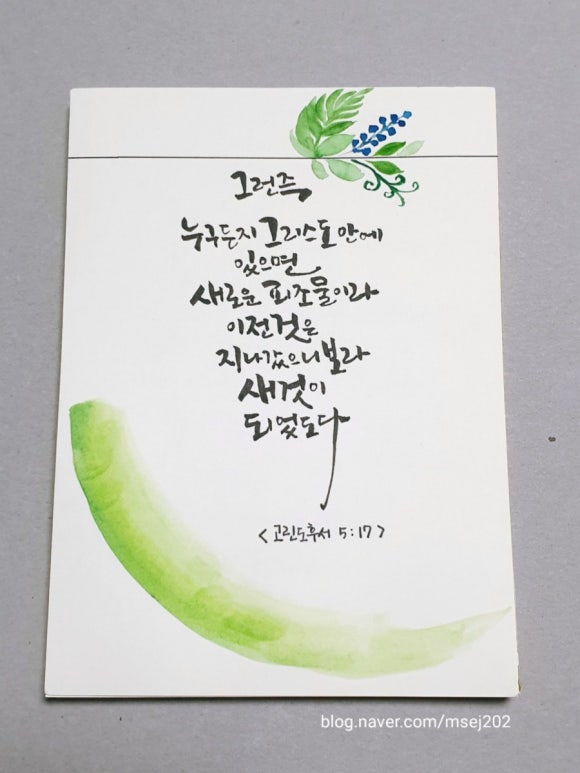 그런즉,
누구든지 그리스도 안에
있으면
새로운 피조물이라
이전것은
지나갔으니 보라
새것이
되었도다
<고린도후서 5:17>
blog.naver.com/msej202